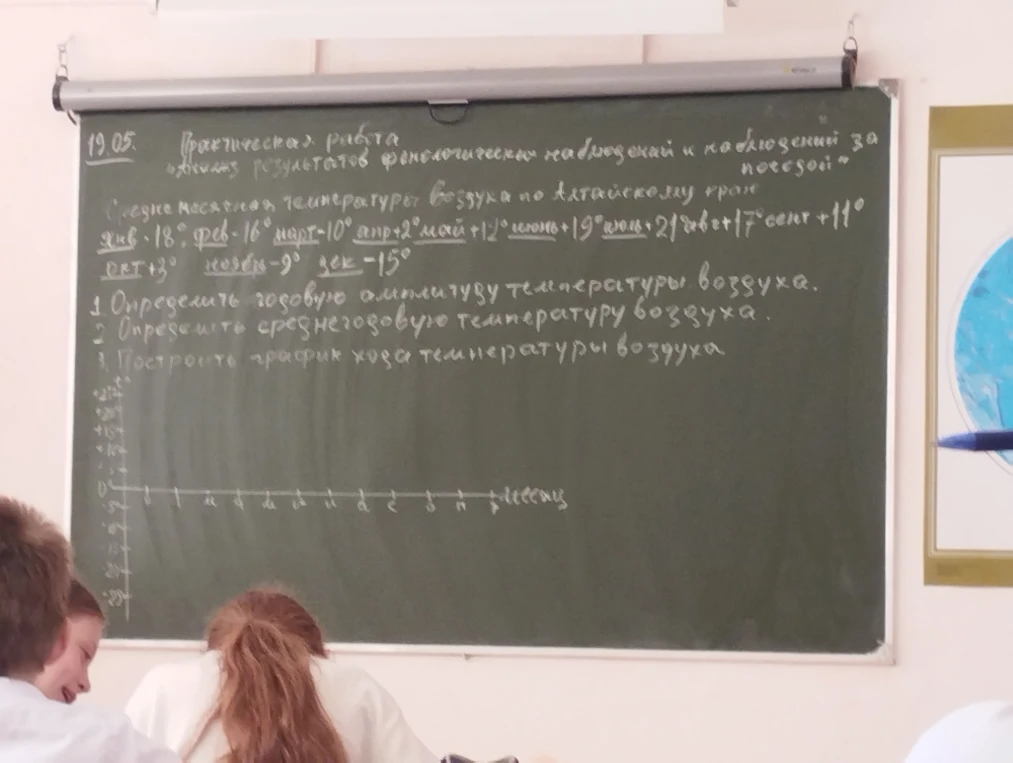 19.05. Практическая работа
"Анализ результатов фенологических наблюдений и наблюдений за
погодой"
Среднемесячная температуры воздуха по Алтайскому краю
янв -18° фев -16° март -10° апр +2° май +12° июнь +19° июль +21° авг +17° сент +11°
окт +3° ноябрь -9° дек -15°
1 Определить годовую амплитуду температуры воздуха.
2 Определить среднегодовую температуру воздуха.
3. Построить график хода температуры воздуха
t°
+20
+15
+10
+5
0°
-5
-10
-15
-20
я ф м а м и и а с о н д месяц